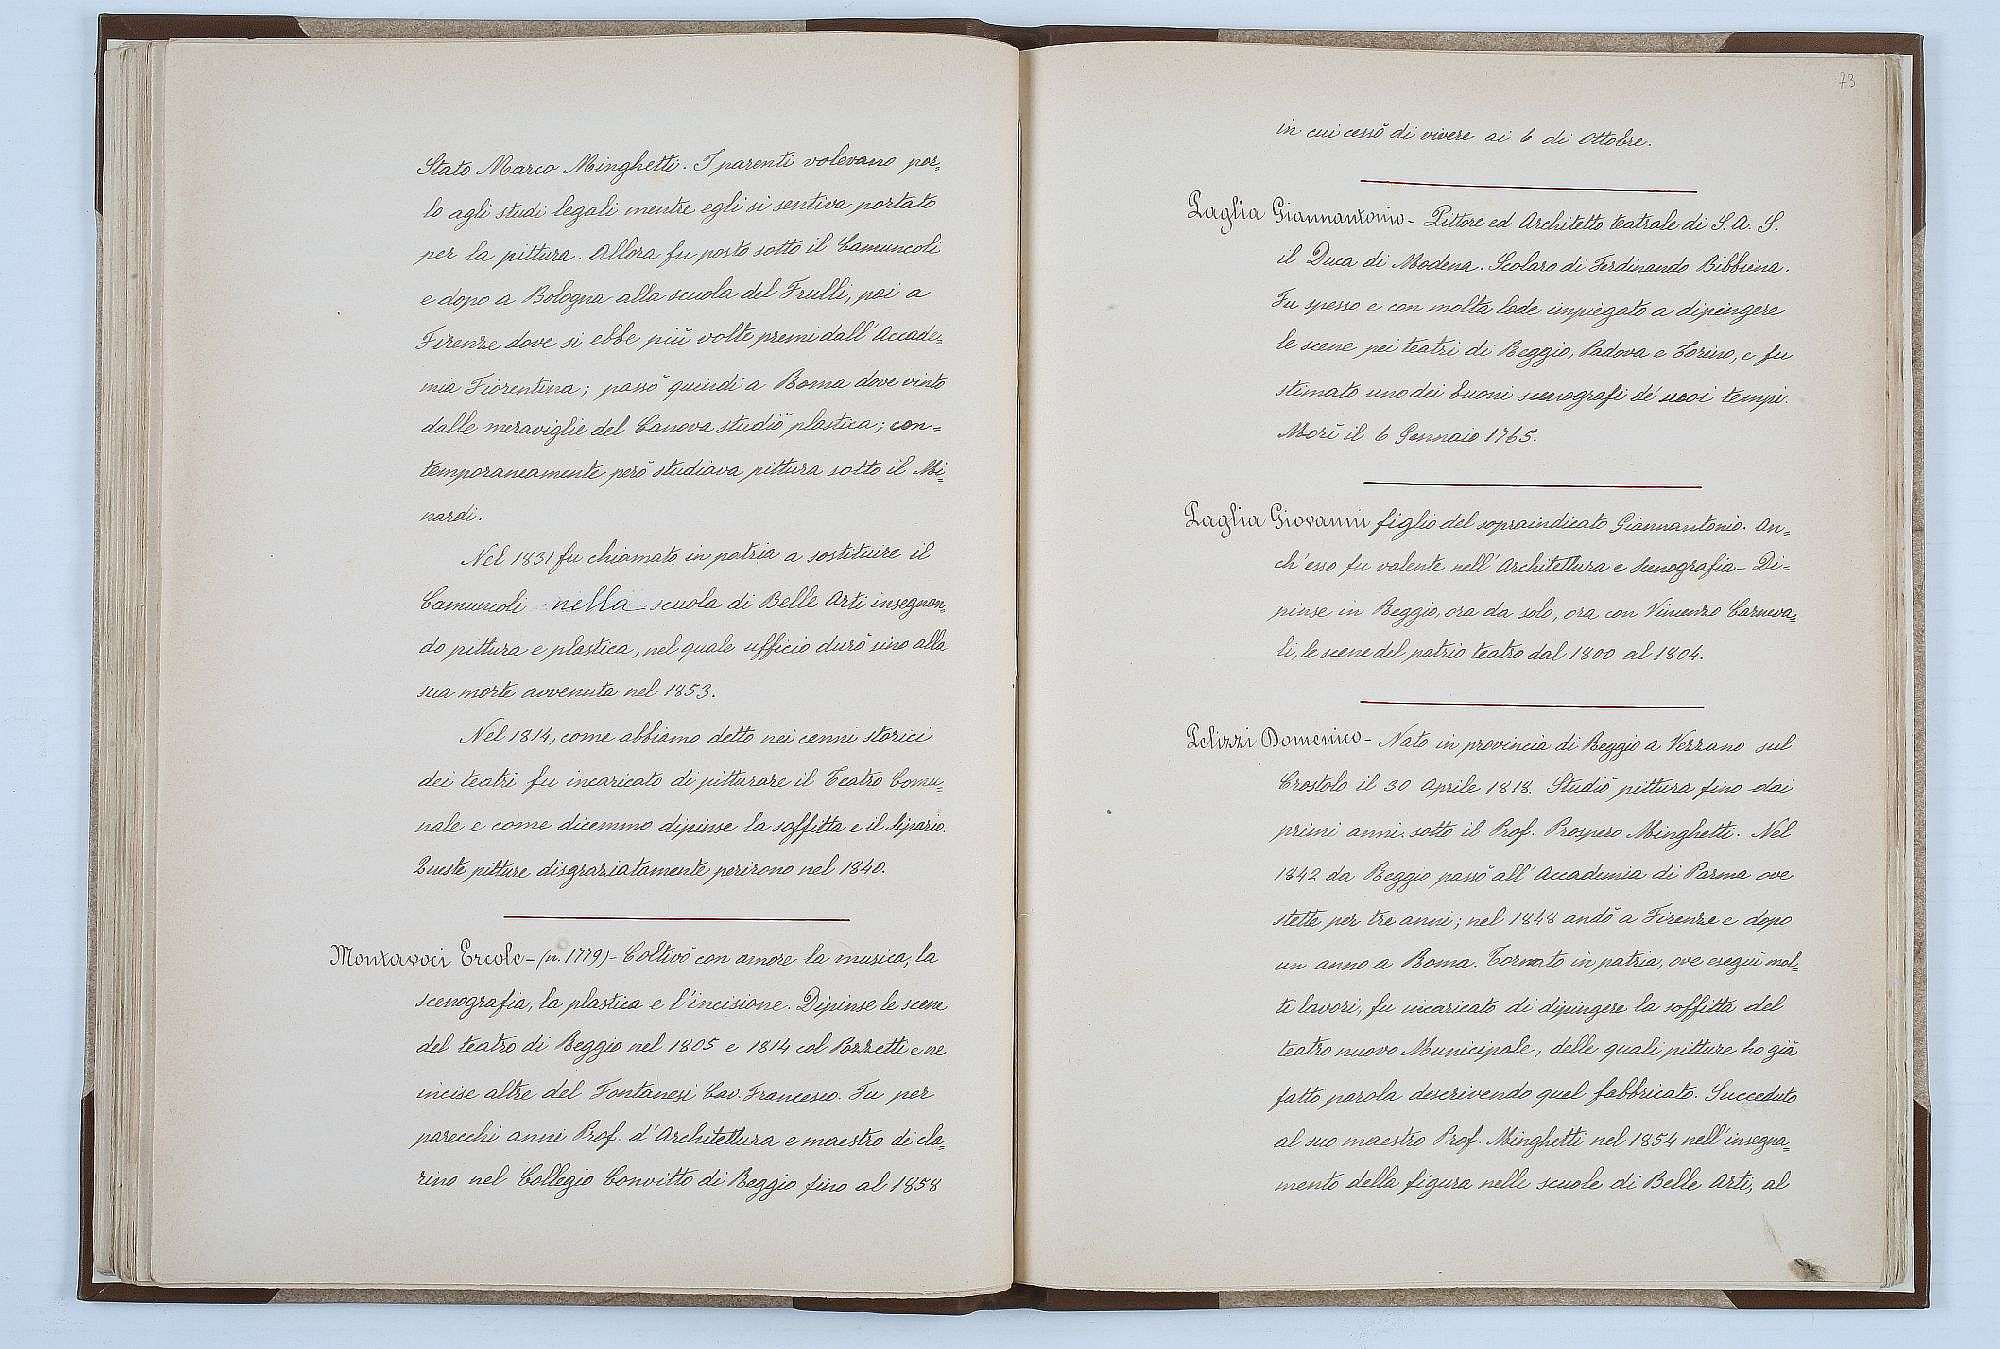 Stato Marco Minghetti. I parenti volevano por=
lo agli studi legali mentre egli si sentiva portato
per la pittura. Allora fu posto sotto il Camuncoli
e dopo a Bologna alla scuola del Frulli, poi a
Firenze dove si ebbe più volte premi dall'Accade=
mia Fiorentina; passò quindi a Roma dove vinto
dalle meraviglie del Canova studiò plastica; con=
temporaneamente però studiava pittura sotto il Mi=
nardi.
Nel 1831 fu chiamato in patria a sostituire il
Camuncoli nella scuola di Belle Arti insegnan=
do pittura e plastica, nel quale ufficio durò sino alla
sua morte avvenuta nel 1853.
Nel 1814, come abbiamo detto nei cenni storici
dei teatri fu incaricato di pitturare il Teatro Comu=
nale e come dicemmo dipinse la soffitta e il sipario.
Queste pitture disgraziatamente perirono nel 1840.
Montavoci Ercole - (n. 1779) - Coltivò con amore la musica, la
scenografia, la plastica e l'incisione. Dipinse le scene
del teatro di Reggio nel 1805 e 1814 col Pozzetti e ne
incise altre del Fontanesi Cav. Francesco. Fu per
parecchi anni Prof. d'Architettura e maestro di cla=
rino nel Collegio Convitto di Reggio fino al 1858
73
in cui cessò di vivere ai 6 di Ottobre.
Paglia Giannantonio - Pittore ed Architetto teatrale di S. A. S.
il Duca di Modena. Scolaro di Ferdinando Bibbiena.
Fu spesso e con molta lode impiegato a dipingere
le scene pei teatri di Reggio, Padova e Torino, e fu
stimato uno dei buoni scenografi de' suoi tempi.
Morì il 6 Gennaio 1765.
Paglia Giovanni figlio del sopraindicato Giannantonio. An=
ch'esso fu valente nell'Architettura e Scenografia - Di=
pinse in Reggio, ora da solo, ora con Vincenzo Carneva=
li, le scene del patrio teatro dal 1800 al 1804.
Pelizzi Domenico - Nato in provincia di Reggio a Vezzano sul
Crostolo il 30 Aprile 1818. Studiò pittura fino dai
primi anni sotto il Prof. Prospero Minghetti. Nel
1842 da Reggio passò all'Accademia di Parma ove
stette per tre anni; nel 1848 andò a Firenze e dopo
un anno a Roma. Tornato in patria, ove eseguì mol=
ti lavori, fu incaricato di dipingere la soffitta del
teatro nuovo Municipale, delle quali pitture ho già
fatto parola descrivendo quel fabbricato. Succeduto
al suo maestro Prof. Minghetti nel 1854 nell'insegna=
mento della figura nelle scuole di Belle Arti, al